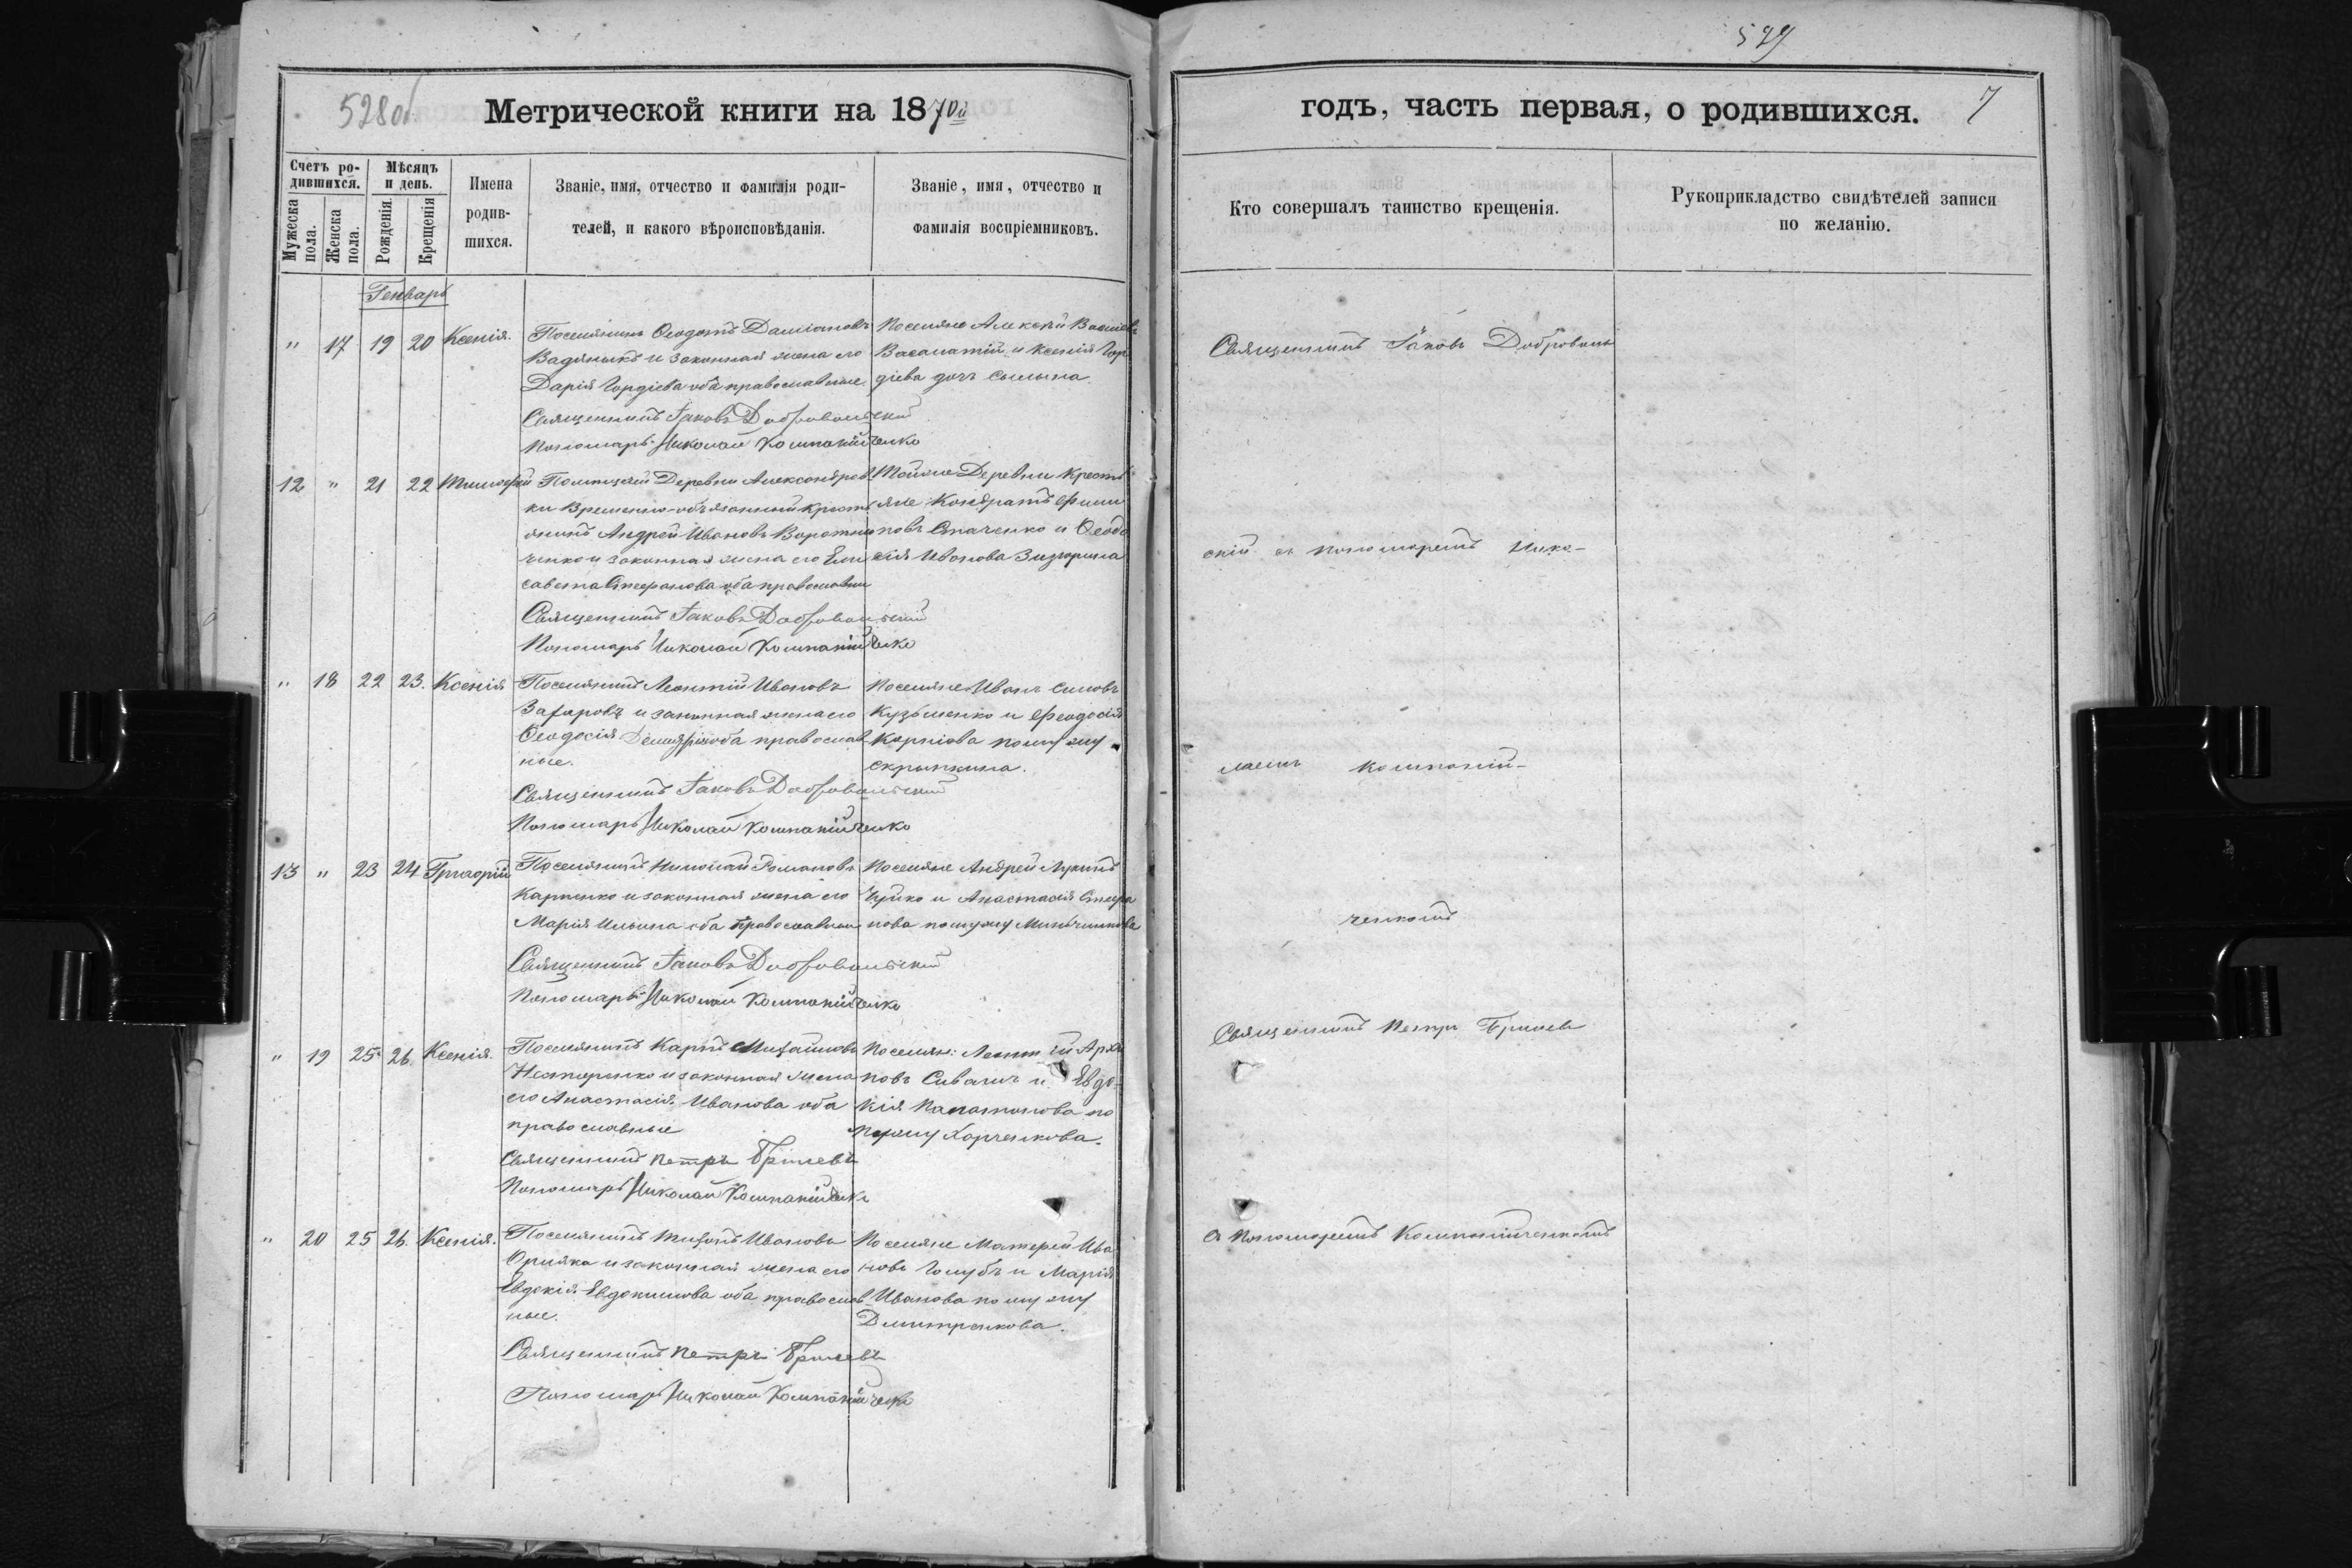 528об
Метрической книги на 1870й
Счетъ родившихся.
Мѣсяцъ и день.
Мужеска пола.
Женска пола.
Рожденія.
Крещенія
Имена родившихся.
Званіе, имя, отчество и фамилія родителей, и какого вѣроисповѣданія.
Званіе, имя, отчество и фамилія воспріемниковъ.
Генварь
" 17 19 20 Ксенія.
Поселянинъ Ѳеодотъ Даміановъ
и законная жена его
Дарія Гордіева оба православные.
Поселяне Алексѣй
и Ксенія Гор
діева дочь
Священникъ Іаковъ Добровольскій
Пономарь Николай Компанійченко
12 " 21 22 Тимофей
Деревни Александров
ки Временно-обязанный кресть
янинъ Андрей Ивановъ
ченко и законная жена его Ели
савета Стефанова оба православны
Тойже Деревни кресть
яне Кондратъ Фили
повъ и Ѳеодо
сія Иванова
Священникъ Іаковъ Добровольскій
Пономарь Николай Компанійченко
" 18 22 23. Ксенія
Поселянинъ Леонтій Ивановъ
Захаровъ и законная жена его
Ѳеодосія оба православ
ные.
Поселяне Иванъ
Кузьменко и Феодосія
Карпіова по мужу
скрыпкина.
Священникъ Іаковъ Добровольскій
Пономарь Николай Компанійченко
13 " 23 24 Григорій
Поселянинъ Николай Романовъ
Карпенко и законная жена его
Марія Ильина оба православные
Поселяне Андрей Лукинъ
и Анастасія Стефа
нова по мужу
Священникъ Іаковъ Добровольскій
Пономарь Николай Компанійченко
" 19 25 26 Ксенія.
Поселянинъ Карпъ Михайловъ
Нестеренко и законная жена
его Анастасія Иванова оба
православные
Леонтій Архи
повъ и Евдо-
кія по
мужу Харченкова.
Священникъ Петръ
Пономарь Николай Компанійченко
" 20 25 26. Ксенія.
Поселянинъ Тихонъ Ивановъ
и законная жена его
Евдокія Евдокимова оба православ
ные.
Поселяне Матѳей Ива
новъ Голубъ и Марія
Иванова по мужу
Дмитренкова.
Священникъ Петръ
Пономарь Николай Компанійченко
529
годъ, часть первая, о родившихся. 7
Кто совершалъ таинство крещенія.
Рукоприкладство свидѣтелей записи по желанію.
Священникъ Іаковъ Доброволь
скій съ пономаремъ Нико-
лаемъ Компаній-
ченкомъ
Священникъ Петръ
съ пономаремъ Компанійченкомъ